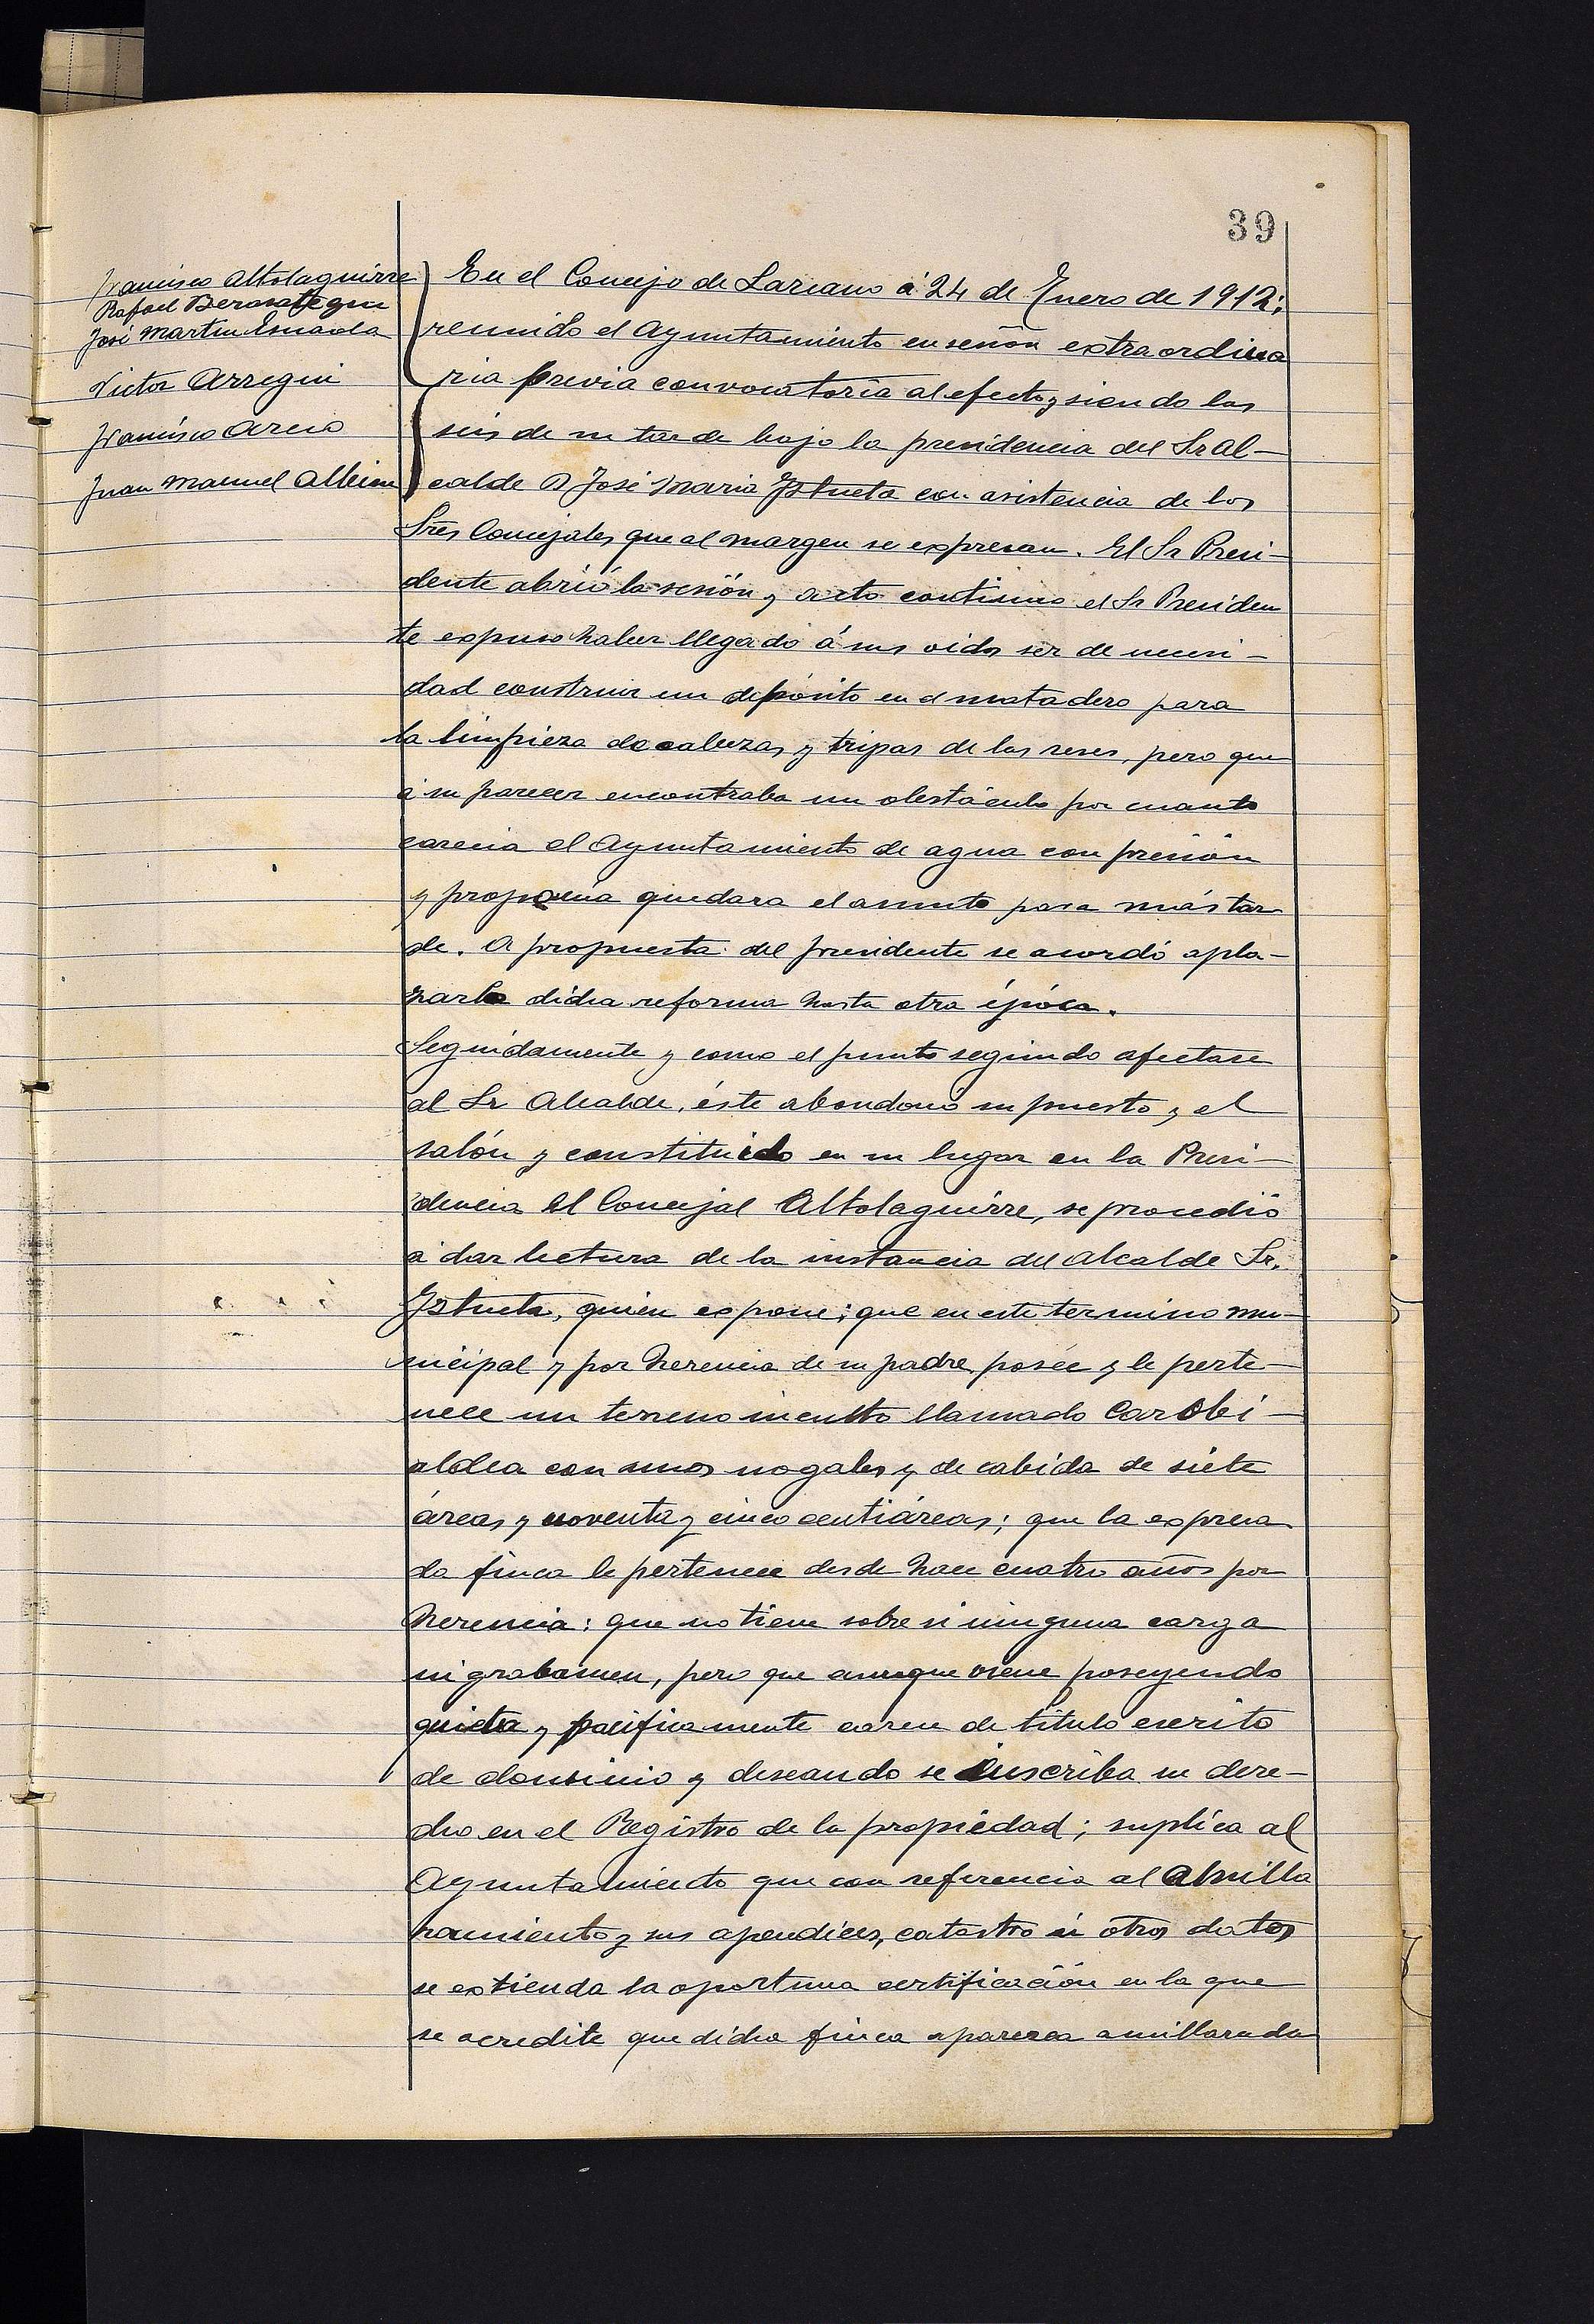 39
Francisco Altolaguirre
Rafael Berasategui
José Martin Esnaola
Victor Arregui
Francisco Arcio
Juan Manuel Albisu
En el Concejo de Lazcano á 24 de Enero de 1912;
reunido el Ayuntamiento en sesión extraordina
ria previa convocatoria al efecto y siendo las
seis de su tarde bajo la presidencia del Sr Al-
calde D José Maria Ystueta con asistencia de los
Sres Concejales que al margen se expresan. El Sr Presi-
dente abrió la sesión y acto continuo el Sr Presiden
te expuso haber llegado á sus oidos ser de necesi-
dad construir un depósito en el matadero para
la limpieza de cabezas y tripas de las reses, pero que
á su parecer encontraba un obstáculo por cuanto
carecia el Ayuntamiento de agua con presión
y proponia quedara el asunto para más tar
de. A propuesta del presidente se acordó apla-
zarla dicha reforma hasta otra época.
Seguidamente y como el punto segundo afectase
al Sr Alcalde, éste abandonó su puesto y el
salón y constituido en su lugar en la Presi-
dencia el Concejal Altolaguirre, se procedió
á dar lectura de la instancia del Alcalde Sr.
Ystueta, quien expone; que en este termino mu-
nicipal y por herencia de su padre posée y le perte-
nece un terreno inculto llamado Carobi-
aldea con unos nogales y de cabida de siete
áreas y noventa y cinco centiáreas; que la expresa
da finca le pertenece desde hace cuatro años por
herencia: que no tiene sobre si ninguna carga
ni grabamen, pero que aunque viene poseyendo
quieta y pacificamente carece de titulo escrito
de dominio y deseando se inscriba su dere-
cho en el Registro de la propiedad; suplica al
Ayuntamiento que con referencia al amilla
ramiento y sus apendices, catastro ú otros datos
se extienda la oportuna certificación en la que
se acredite que dicha finca aparezca amillarada